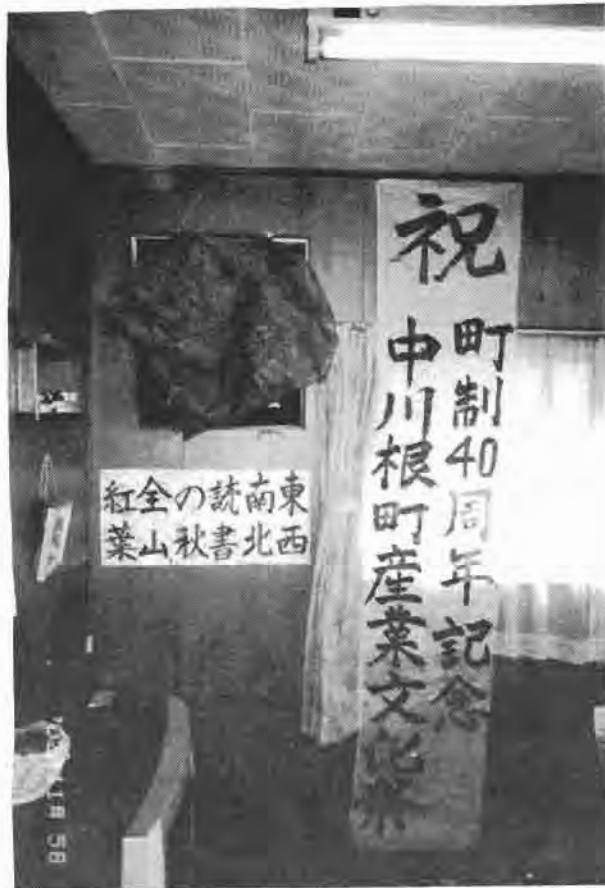 祝
町制40周年記念
中川根町産業文化祭
東西
南北
読書
の秋
全山
紅葉